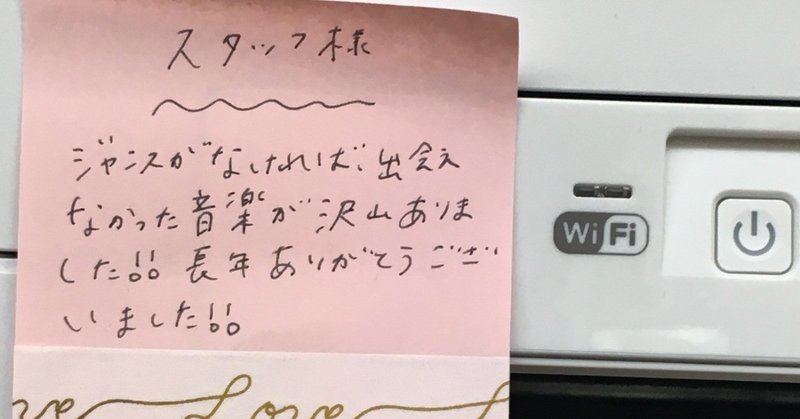 スタッフ様
ジャンスがなければ、出会え
なかった音楽が沢山ありま
した!! 長年ありがとうござ
いました!!
Wi Fi
ve Love L